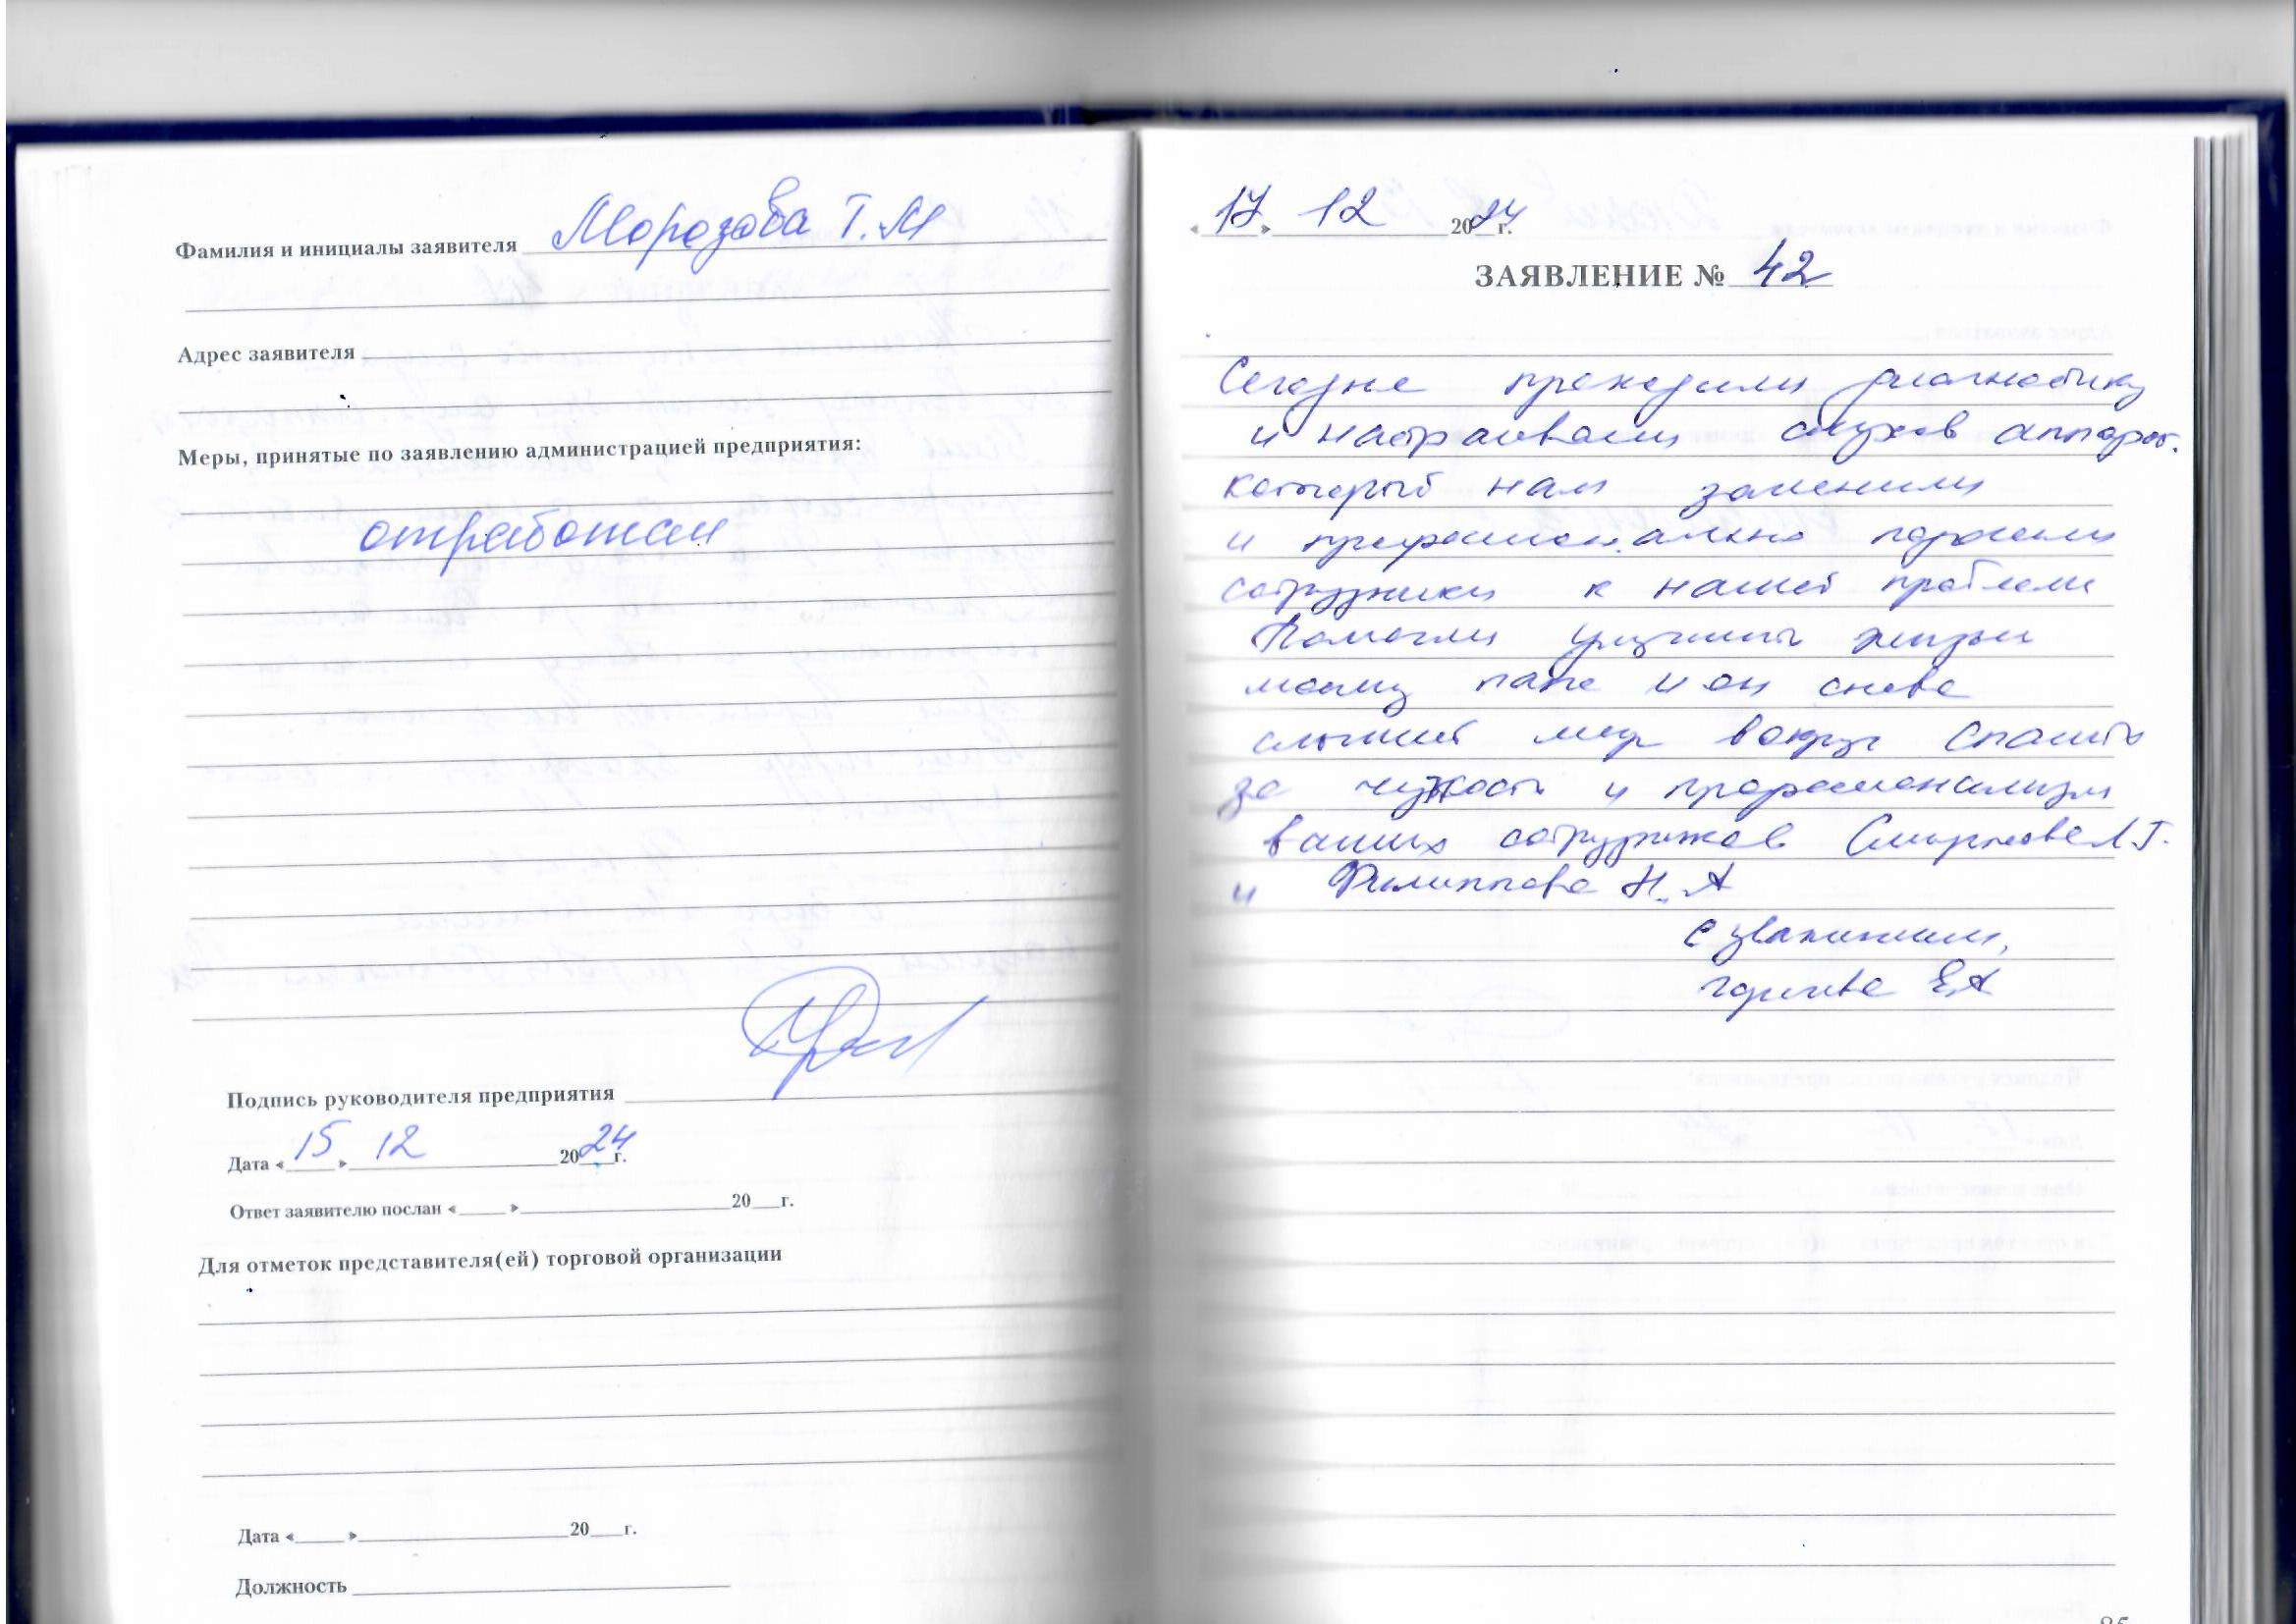 Фамилия и инициалы заявителя Морозова Т.М
Адрес заявителя
Меры, принятые по заявлению администрацией предприятия:
отработан
Подпись руководителя предприятия
Дата « 15 » 12 2024 г.
Ответ заявителю послан «___» 20__г.
Для отметок представителя(ей) торговой организации
Дата «___» 20__г.
Должность
« 17 » 12 2024 г.
ЗАЯВЛЕНИЕ № 42
Сегодня проходили диагностику
и настраивали слухов аппарат.
который нам заменили
и професионально подошли
сотрудники к нашей проблеме
Помогли улучшить жизнь
моему папе и он снова
слышит мир вокруг Спасибо
за чуткость и професионализм
ваших сотрудников Смирнова Л.Г.
и Филиппова Н.А
С уважением,
Е.А